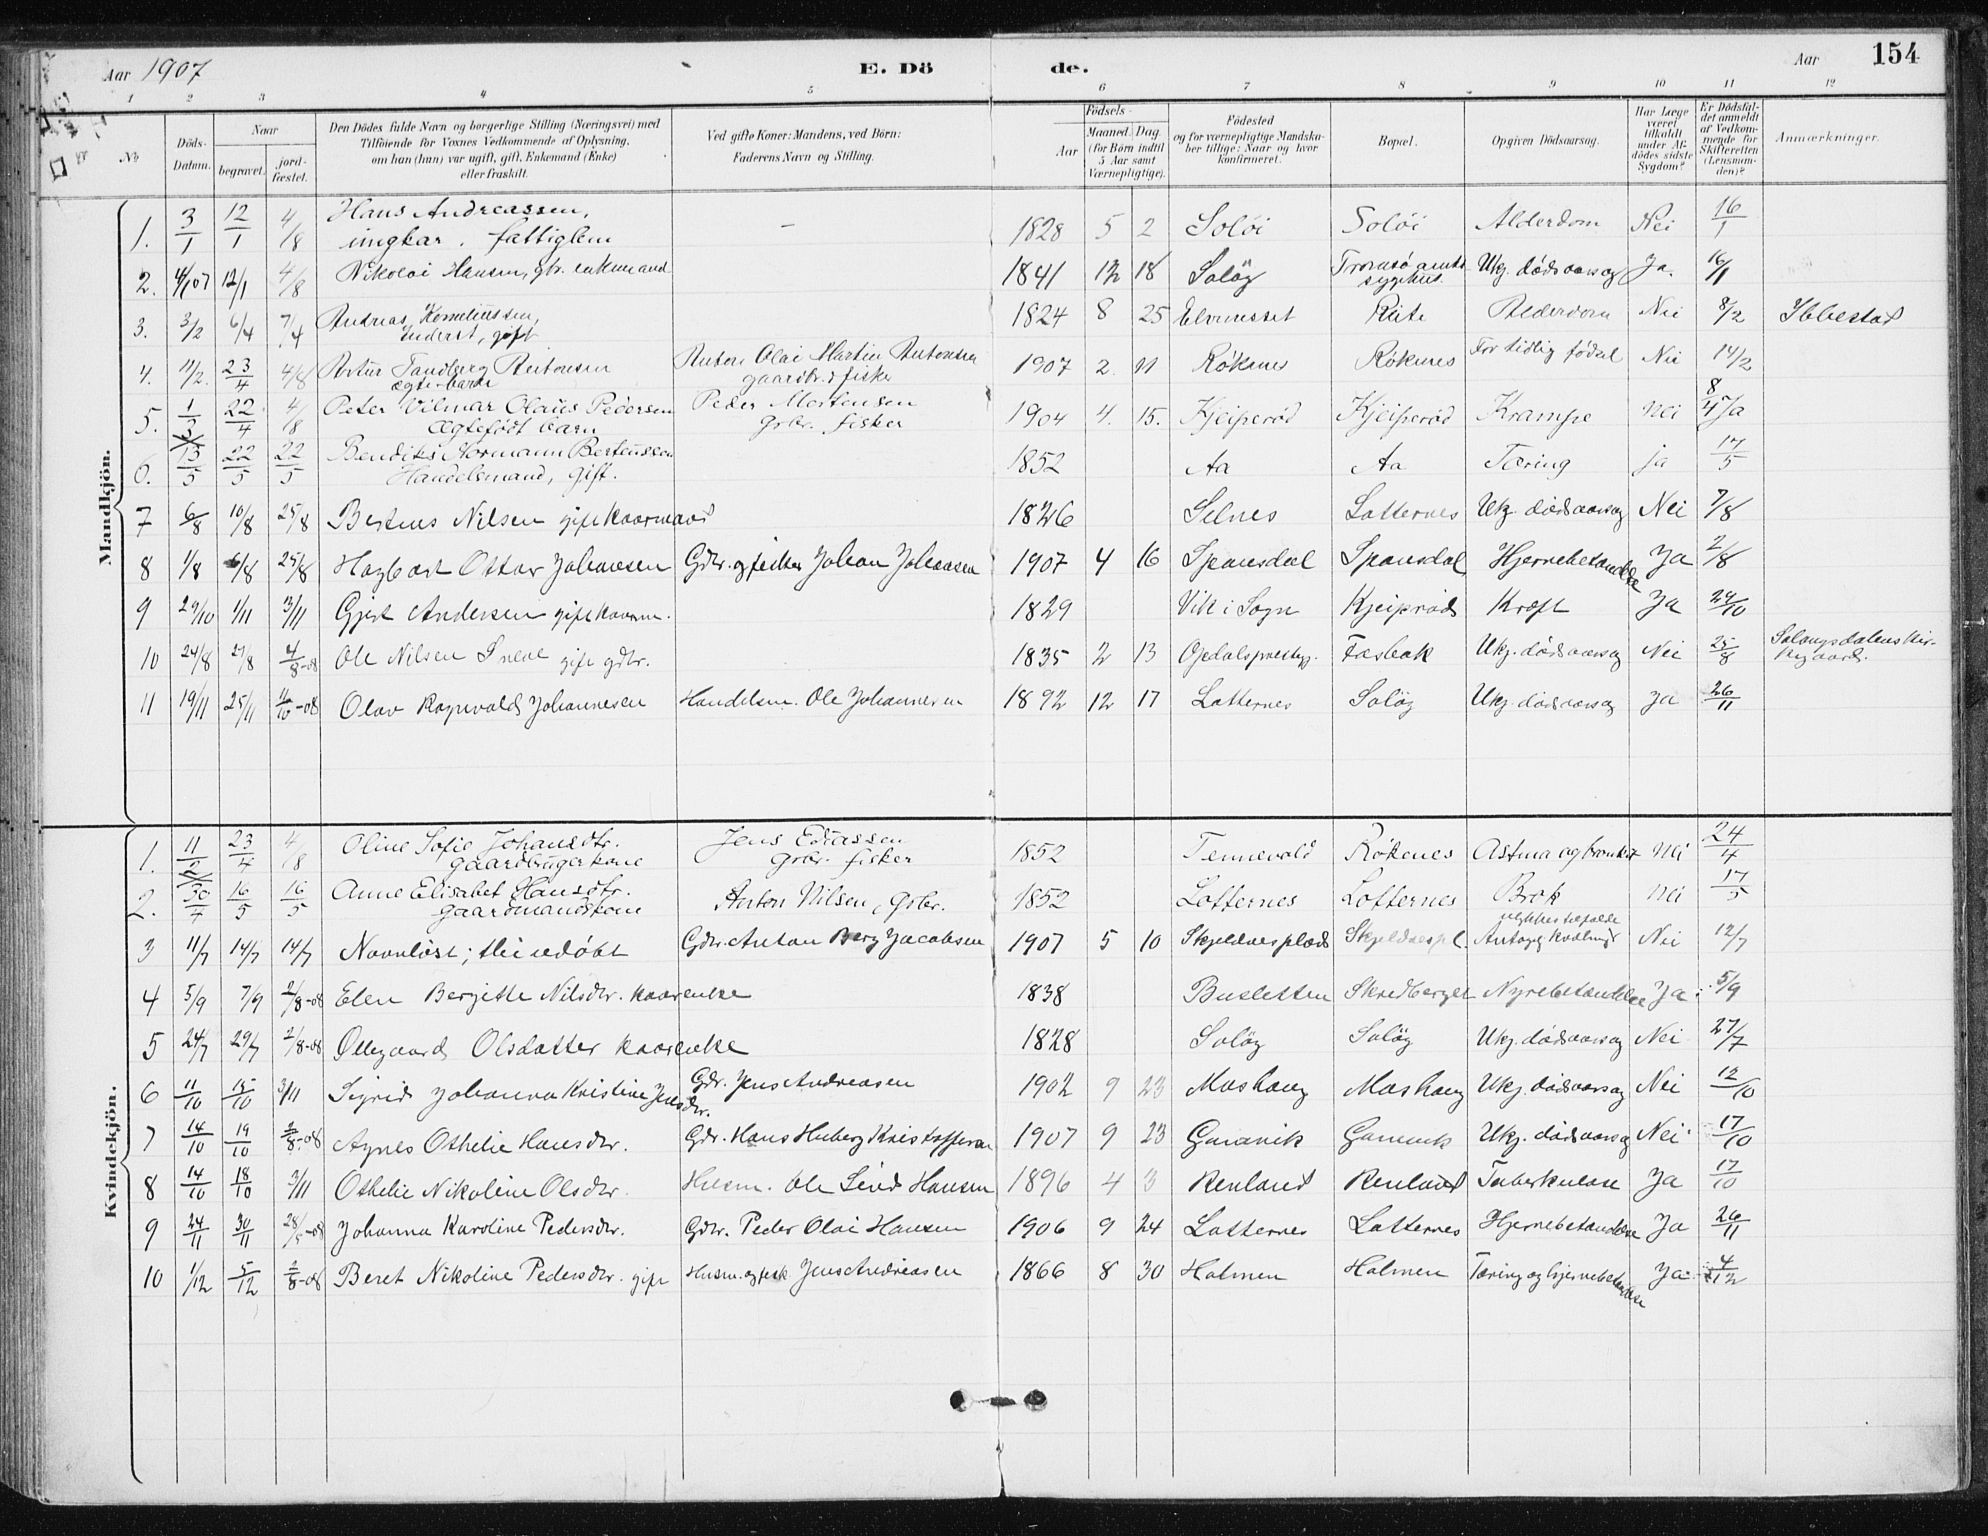 Aar 1907 E. Dö de. Aar 154
1 2 3 4 5 6 7 8 9 10 11 12
No. Döds-Datum. Naar begravet. jord-fæstet. Den Dödes fulde Navn og borgerlige Stilling (Næringsvei) med Tilföiende for Voxnes Vedkommende af Oplysning, om han (hun) var ugift, gift, Enkemand (Enke) eller fraskilt. Ved gifte Koner: Mandens, ved Børn: Faderens Navn og Stilling. Födsels- Aar Maaned. Dag. (for Börn indtil 5 Aar samt Værnepligtige). Födested og for værnepligtige Mandskaber tillige: Naar og hvor konfirmeret. Bopæl. Opgiven Dödsaarsag. Har Læge været tilkaldt under Afdödes sidste Sygdom? Er Dödsfaldet anmeldt af Vedkommende for Skifteretten (Lensmanden)? Anmærkninger.
Mandkjön.
1. 3/1 12/1 4/8 Hans Andreassen, ungkar. fattiglem — 1828 5 2 Soløi Soløi Alderdom Nei 16/1
2. 4/1 07 12/1 4/8 Nikolai Hansen, gbr. enkemand 1841 12 18 Soløy Tromsø amts sygehus. Ukj. dødsaarsag Ja. 16/1
3. 3/2 6/4 7/4 Andreas Korneliussen, Inderst, gift 1824 8 25 Elvenesset Alderdom Nei 8/2 Ibbestad
4. 11/2. 23/4 4/8 Artur Sandberg Antonsen ægte barn Anton Olai Martin Antonsen gaardbr. & fisker 1907 2. 11 Røkenes Røkenes For tidlig fødsel Nei 14/2
5. 1/3 22/4 4/8 Peter Vilmar Olaus Pedersen Ægtefødt barn Peder Mortensen Grbr. fisker 1904 4. 15. Kjeiperød Kjeiperød Krampe Nei 8/4 Ja
6. 13/5 22/5 22/5 Bendiks Normann Berteussen Handelsmand, gift. 1852 Aa Aa Tæring ja 17/5
7 6/8 10/8 25/8 Berteus Nilsen gift kaarmand 1826 Selnes Latternes Ukj. dødsaarsag Nei 7/8
8 1/8 6/8 25/8 Hagbart Ottar Johansen Gdbr. og fisker Johan Johansen 1907 4 16 Spansdal Spansdal Hjernebetændelse Ja 2/8
9 29/10 1/11 3/11 Gjert Andersen gift kaarm. 1829 Vik i Sogn Kjeiprød Kræft Ja
10 24/8 27/8 4/8-08 Ole Nilsen gift gdbr. 1835 2 13 Opdalsprestegj. Fosbak Ukj. dødsaarsag Nei 25/8 Salangsdalens kirkegaard.
11 19/11 25/11 Olav Ragnvald Johannesen Handelsm. Ole Johannesen 1892 12 17 Latternes Soløy Ukj. dødsaarsag Ja 26/11
Kvindekjön.
1. 11/2 23/4 4/8 Oline Sofie Johansdtr. gaardbrugerkone Jens Ediassen Grbr. fisker 1852 Tennevold Røkenes Astma og bronkit Nei 24/4
2. 30/4 16/5 16/5 Anne Elisabet Hansdtr. gaardmandskone Anton Nilsen, Grbr. 1852 Lotternes Lotternes Brok Nei 17/5
3 11/7 14/7 14/7 Navnløst; udøbt Gdbr. Anton Berg Jacobsen 1907 5 10 Skjeldnesplads Skjeldnespl. Nei 12/7
4 5/9 7/9 2/8-08 Elen Bergitte Nilsdtr. kaarenke 1838 Busletten Skredberget Nyrebetændelse Ja. 5/9
5 24/7 29/7 2/8-08 Ollegaard Olsdatter kaarenke 1828 Soløy Soløy Ukj. dødsaarsag Nei 27/7
6 11/10 15/10 3/11 Sigrid Johanna Kristine Jensdtr. Gdr. Jens Andreasen 1902 9 23 Moshaug Moshaug Ukj. dødsaarsag Nei 12/10
7 14/10 19/10 2/8-08 Agnes Othelie Hansdtr. Gdr. Hans Huberg Kristoffersen 1907 9 23 Gamvik Gamvik Ukj. dødsaarsag Nei 17/10
8 14/10 18/10 3/11 Othelie Nikoline Olsdtr. Husm. Ole Hansen 1896 4 3 Renland Renland Tuberkulose Ja 17/10
9 24/11 30/11 Johanna Karoline Pedersdtr. Gdbr. Peder Olai Hansen 1906 9 24 Latternes Latternes Hjernebetændelse Ja 26/11
10 1/12 5/12 2/8-08 Beret Nikoline Pedersdtr. gift Husm. og fisk Jens Andreasen 1866 8 30 Holmen Holmen Tæring og hjernebetændelse Ja 4/12